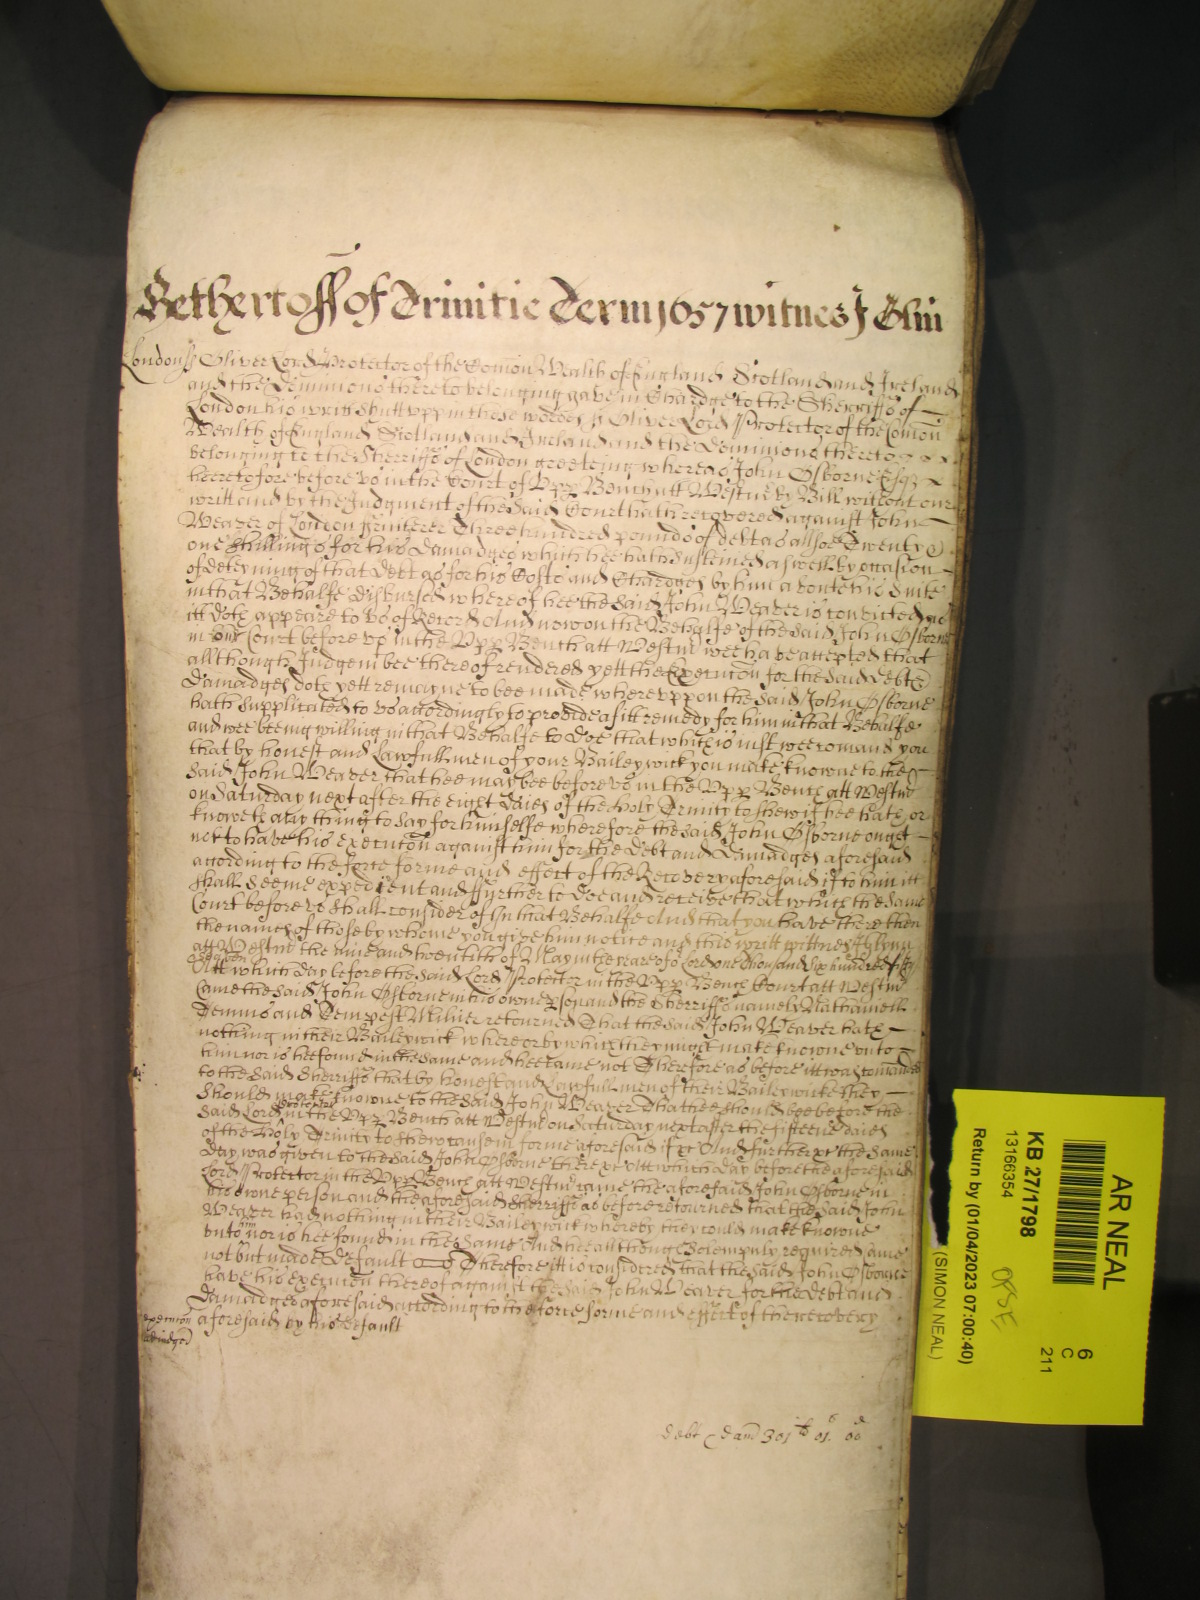 Yet hertoff of Trinitie Terme 1657 witnes J Glin
London ss Oliver Lord Protector of the Com̄on Wealth of England Scotland and Ireland
and the Dominions thereto belonging gave in Chardge to the Sherriffs of
London his writt shutt upp in these wordes ss Oliver Lord Protector of the Com̄on
Wealth of England Scotland and Ireland and the Dominions thereto
belonging to the Sherriffs of London greeteing whereas John Osborne Esqr
heretofore before us in the Court of Upp Bench att Westmr by Bill without our
writt and by the Judgment of the said Court hath recovered against John
Weaver of London Three hundred pounds of debt as allsoe Twenty &
one shillings for his damadges which hee hath susteined aswell by occasion
of deteyning of that debt as for his Costs and Chardges by him aboute his suite
in that Behalfe disbursed whereof hee the said John Weaver is convicted as
itt doth appeare to us of Record And now on the Behalfe of the said John Osborne
in our Court before us in the Upp Bench att Westmr wee have accepted that
allthough Judgemt bee thereof rendered yett the Execucon for the said debt &
damadges doth yett remayne to bee made whereuppon the said John Osborne
hath supplicated to us accordingly to provide a fitt remedy for him in that Behalfe
and wee beeing willing in that Behalfe to doe that which is iust wee comand you
that by honest and Lawfull men of your Baileywick you make knowne to the
said John Weaver that hee may bee before us in the Upp Bench att Westmr
on Saturday next after the eight daies of the Holy Trinity to shew if hee hath or
knoweth any thing to say for himselfe wherefore the said John Osborne ought
not to have his execucon against him for the debt and damadges aforesaid
according to the force forme and effect of the Recovery aforesaid if to him itt
shall seeme expedient and ffurther to doe and receive that which the same
Court before us shall consider of in that Behalfe And that you have there then
the names of those by whome you give him notice and this writt wittnes J Glynn
att Westmr the nine and twentith of May in the yeare of or Lord one thousand six hundred fifty
seaven Att which day before the said Lord Protector in the Upp Bench Court att Westmr
came the said John Osborne in his owne pson and the Sherriffs namely Nathaniell
Temmes and Tempest Milner returned That the said John Weaver hath
nothing in their Baileywick where or by which they might make knowne unto
him nor is hee found in the same and hee came not Therefore as before itt was comanded
to the said Sherriffs that by honest and Lawfull men of their Baileywicke they
should make knowne to the said John Weaver That hee should bee before the
said Lord Protector in the Upp Bench att Westmr on Saturday next after the fifteene daies
of the Holy Trinity to shew cause in forme aforesaid if &c And further &c the same
day was given to the said John Osborne there &c Att which day before the aforesaid
Lord Protector in the Upp Bench att Westmr came the aforesaid John Osborne in
his owne person and the aforesaid Sherriffs as before returned that the said John
Weaver had nothing in their Bailywick whereby they could make knowne
unto him nor is hee found in the same And hee allthough solempnly required came
not but made default Therefore itt is considered that the said John Osborne
have his execucon thereof against the said John Weaver for the debt and
Damadges aforesaid according to the force forme and effect of the recovery
aforesaid by his default
execucon
adiudged
debt & dam 301 li 01 s 00 d
AR NEAL
6
C
211
KB 27/1798
13166354
Return by (01/04/2023 07:00:40)
(SIMON NEAL)